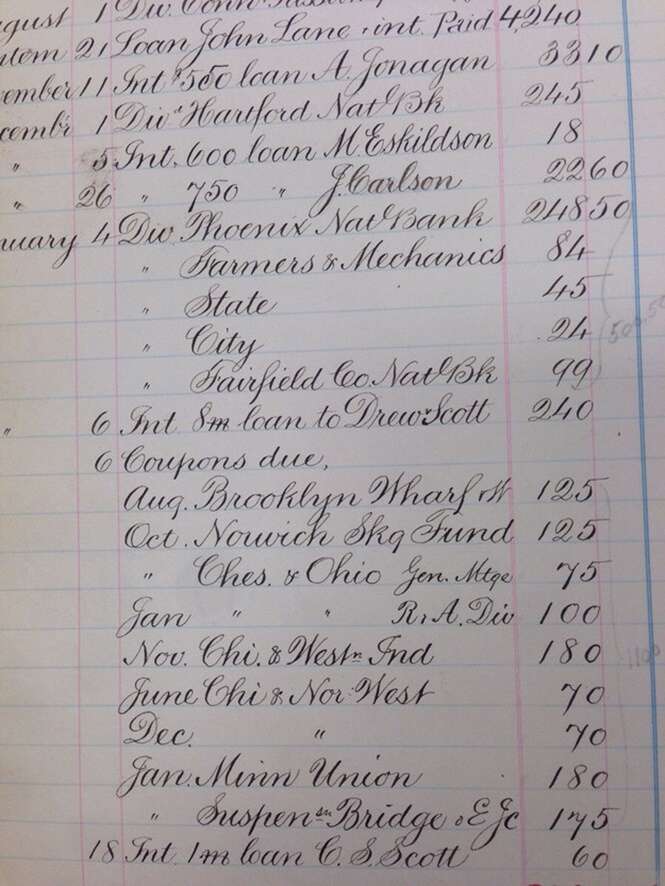 gust 1 Div. Conn
tem 21 Loan John Lane & int. Paid 4,240
vember 11 Int $550 loan A. Jonagan 33 10
cembr 1 Divd Hartford Natl Bk 245
" 5 Int. 600 loan M. Eskildson 18
" 26 " 750 " J. Carlson 22 60
nuary 4 Div. Phoenix Natl Bank 248 50
" Farmers & Mechanics 84
" State 45
" City 24
" Fairfield Co. Natl Bk 99
" 6 Int 8m loan to Drew & Scott 240
6 Coupons due,
Aug. Brooklyn Wharf 125
Oct. Norwich Skg Fund 125
" Ches. & Ohio Gen. Mtge 75
Jan " " R. A. Div 100
Nov. Chi. & Westn Ind 180
June Chi & Nor-West 70
Dec. " 70
Jan. Minn Union 180
" Suspensn Bridge & E Jc 175
18 Int. 1m loan C. S. Scott 60